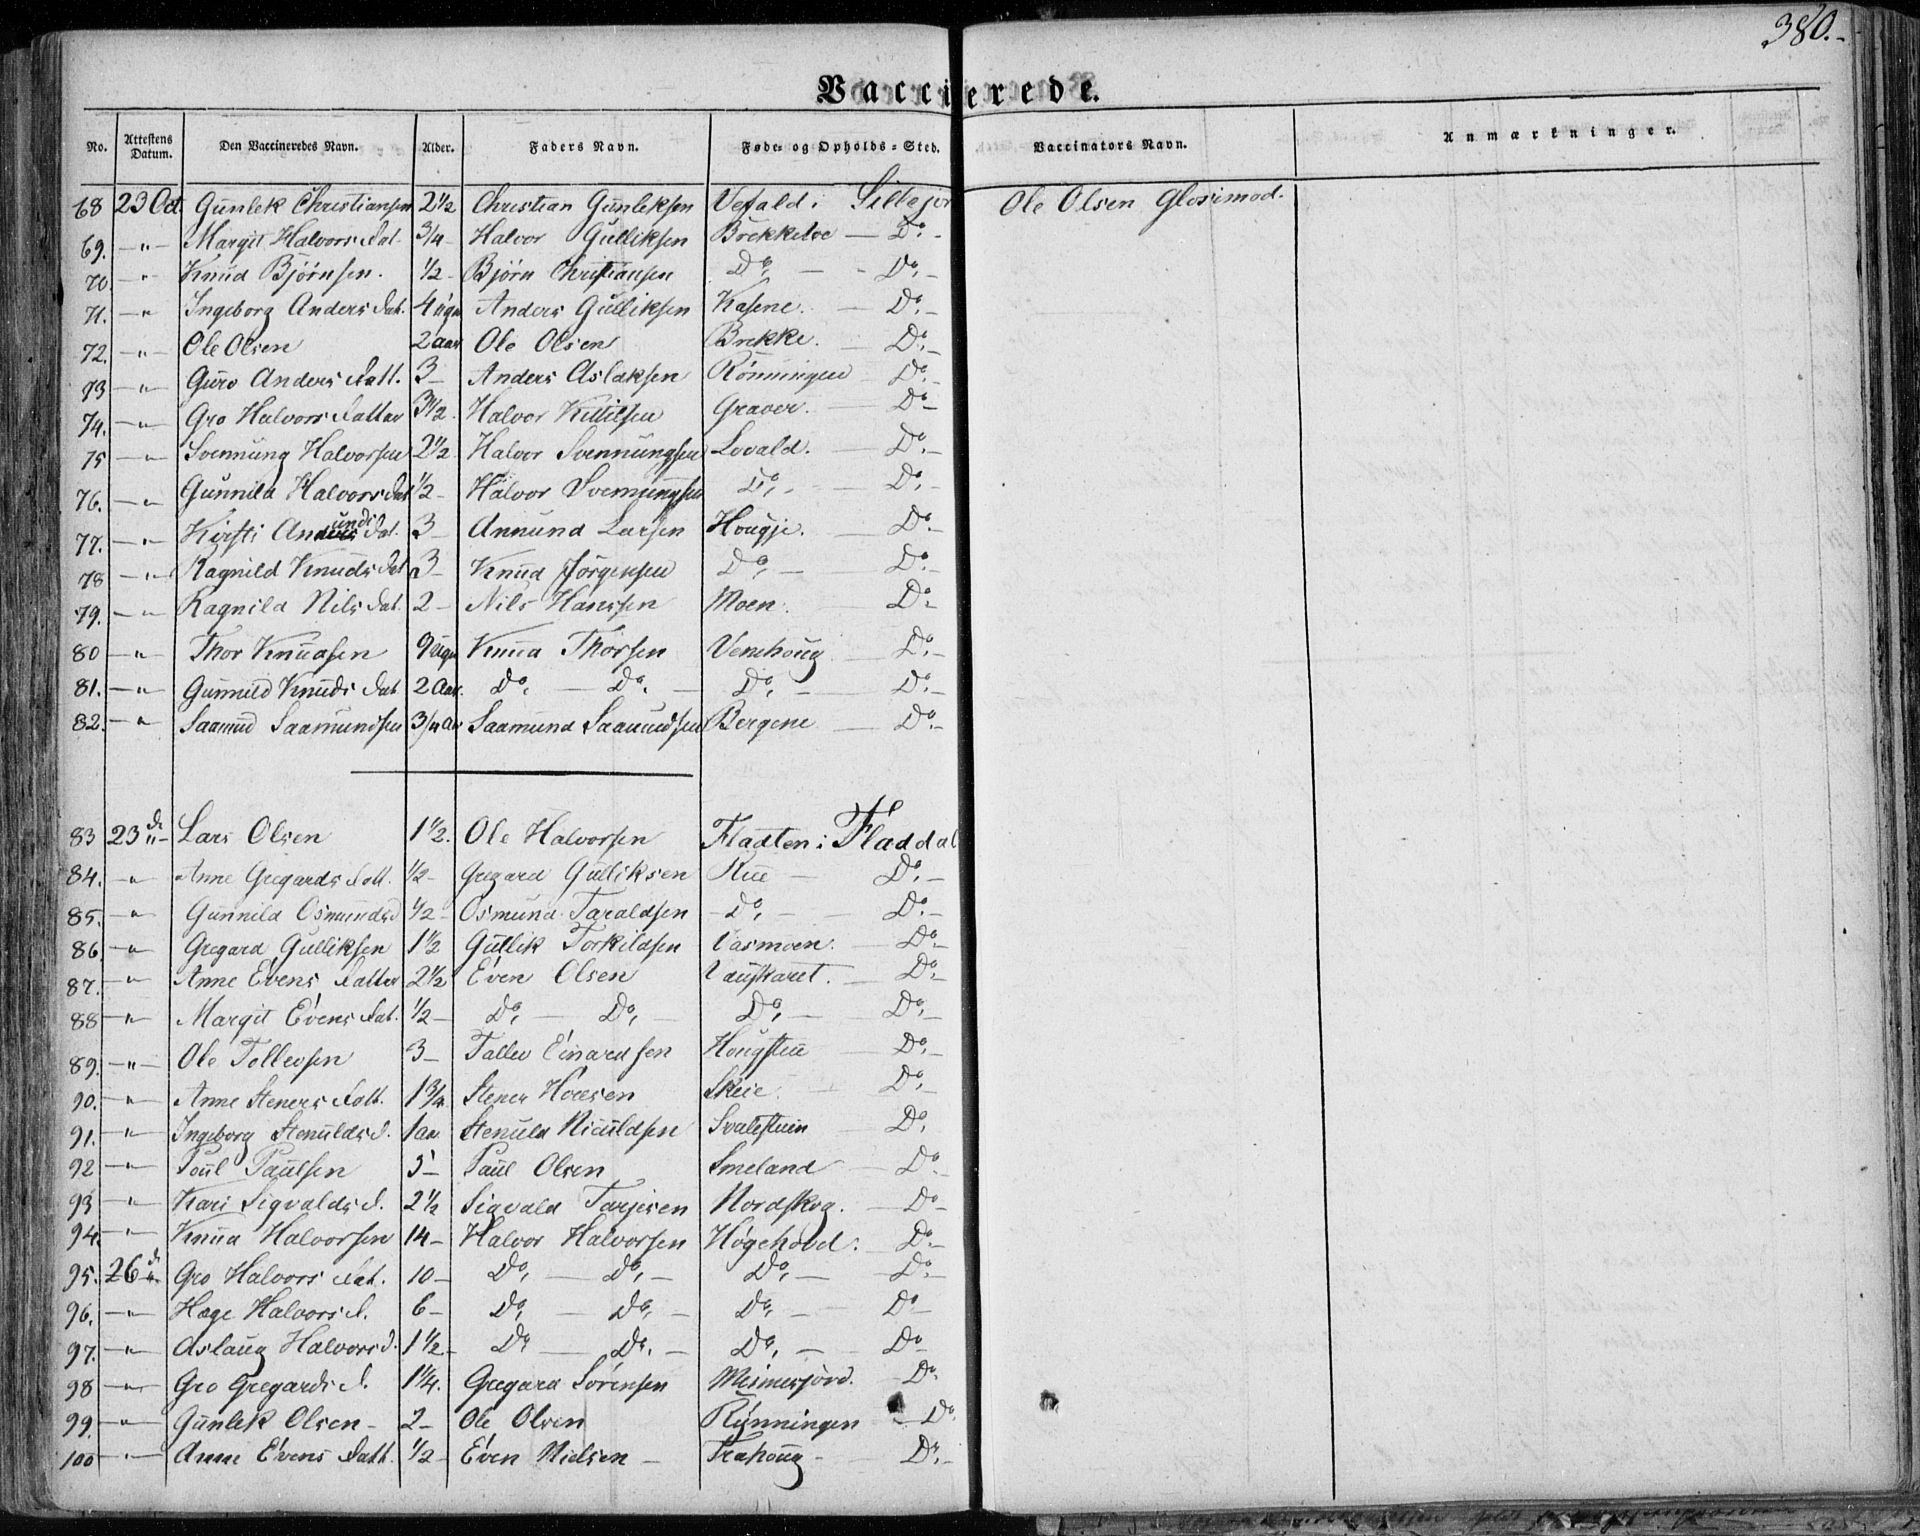 380.
Vaccinerede.
No. Attestens Datum. Den Vaccineredes Navn. Alder. Faders Navn. Føde- og Opholds-Sted. Vaccinators Navn. Anmærkninger.
68 23 Oct Gunlek Christiansen 2½ Christian Gunleksen Vefald i Ole Olsen Glosimod.
69. -"- Margit Halvors Dat. 3/4 Halvor Gulliksen - Do -
70. " Knud Bjørnsen. ½ - Bjørn Christiansen Do, - - Do, -
71. - " Ingeborg Anders Dat. 4 Anders Gulliksen Kasene. - Do. -
72. -"- Ole Olsen 2 aar Ole Olsen Brekke. Do. -
73 -"- Guro Anders Datt. 3 - Anders Aslaksen Rönningen - Do. -
74. -"- Gro Halvors Datter 3½. Halvor Kittilsen Graver. - Do -
75 -"- Svennung Halvorsen 2½ Halvor Svennungsen Lovald. - Do. -
76. -"- Gunnild Halvors Dat ½ - Halvor Svennungsen Do, - Do, -
77. -"- Kirsti Anunds Dat. 3 - Annund Larsen Hougje. - Do -
78 -"- Ragnild Knuds Dat 3 - Knud Jörgensen Do, - Do. -
79. -"- Ragnild Nils Dat. 2 - Nils Hanssen Moen. Do -
80 -"- Thor Knudsen 9 Knud Thorsen Venehoug - Do. -
81. -"- Gunnild Knuds Dat 2 Aar. Do, - Do. - Do, - Do. -
82. -"- Saamund Saamundsen 3/4 Aar Saamund Saamundsen Bergene Do. -
83 23 d. "- Lars Olsen 1½. Ole Halvorsen Fladten i Fladdal
84. -"- Anne Gregards Datt. ½ - Gregard Gulliksen Rue - Do. -
85. -"- Gunnild Osmundsd ½ - Osmund Taraldsen - Do, - Do. -
86. -"- Gregard Gulliksen 1½ Gullik Torkildsen Vasmoen. - Do -
87. -"- Anne Evens Datter 2½ Even Olsen - Do. -
88 -"- Margit Evens Dat. ½ - Do, - Do, - Do, - Do, -
89. -"- Ole Tollevsen 3 - Tallev Einardsen - Do, -
90. -"- Anne Steners Datt. 1 3/4 Stener Skeie - Do,
91. -"- Ingeborg Stenulds d. 1 aar Stenuld Niculdsen Do,
92 -"- Poul Paulsen 5 - Paul Olsen Smeland - Do.
93 -"- Kari Sigvalds d. 2½ Sigvald Tarjesen Nordskog. - Do -
94. -"- Knud Halvorsen 14 - Halvor Halvorsen Høgehovd. Do. -
95. 26 d. Gro Halvors Dat. 10 - Do, - Do, - Do, - Do. -
96. -"- Hæge Halvors d. 6 - Do, - Do, - Do, - Do -
97. -"- Aslaug Halvors d. 1½ - Do - Do. - Do, - Do
98 -"- Gro Gregards d. 1¼. Gregard Sörensen - Do.
99. -"- Gunlek Olsen - 2 - Ole Olsen Rynningen - Do.
100 -"- Anne Evens Datt. ½ - Even Nielsen - - Do. -